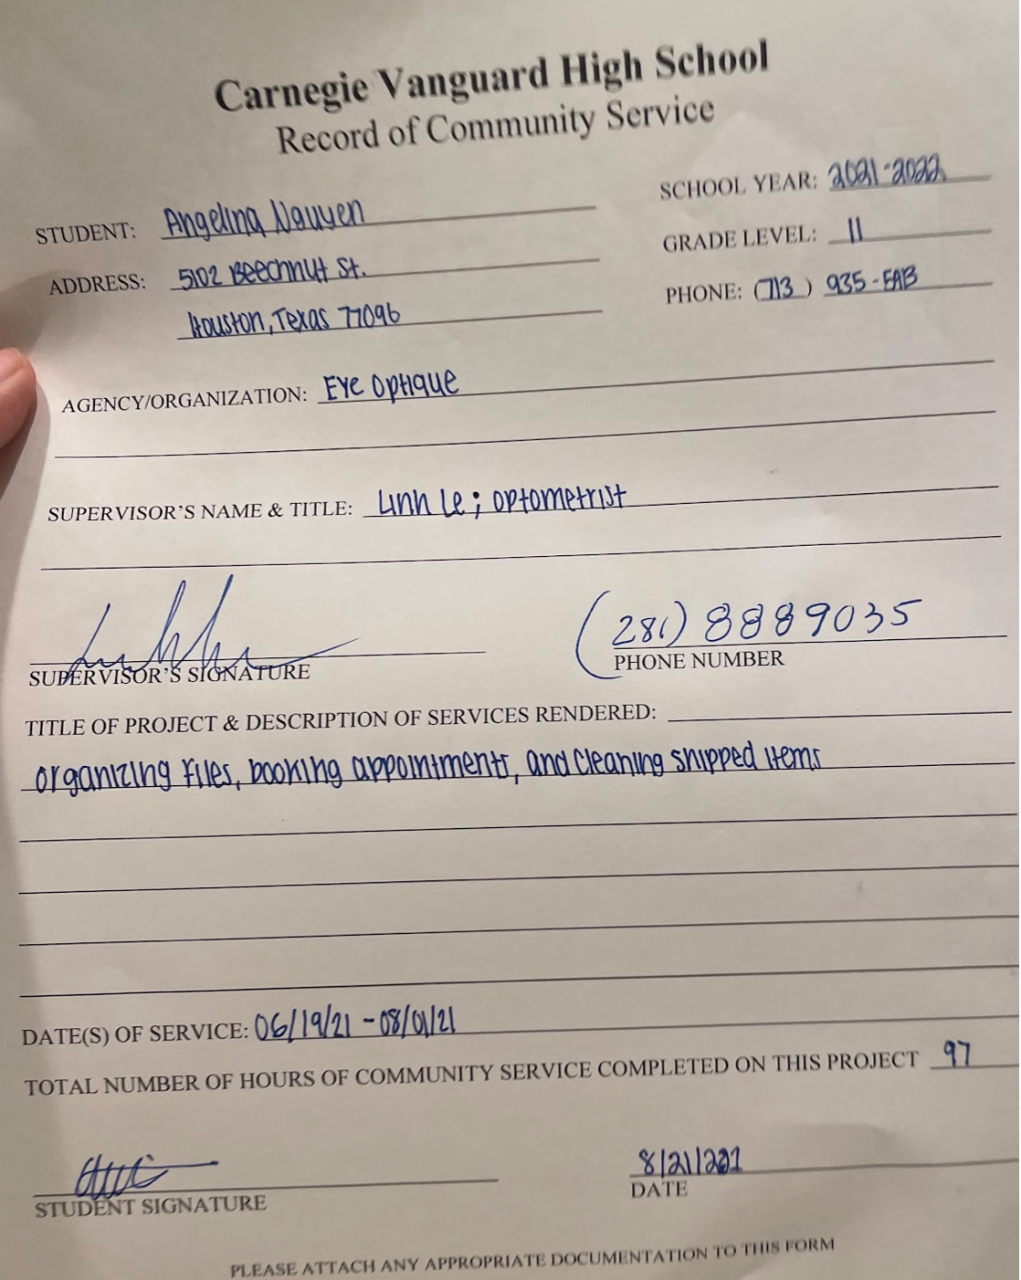 Carnegie Vanguard High School
Record of Community Service
SCHOOL YEAR: 2021-2022
STUDENT: Angelina Nguyen
GRADE LEVEL: 11
ADDRESS: 5102 Beechnut St.
PHONE: (713) 935-
Houston, Texas 77096
AGENCY/ORGANIZATION: Eye Optique
SUPERVISOR'S NAME & TITLE: Linh Le; optometrist
(281) 8889035
SUPERVISOR'S SIGNATURE
PHONE NUMBER
TITLE OF PROJECT & DESCRIPTION OF SERVICES RENDERED:
organizing files, booking appointments, and cleaning shipped items
DATE(S) OF SERVICE: 06/19/21 - 08/01/21
TOTAL NUMBER OF HOURS OF COMMUNITY SERVICE COMPLETED ON THIS PROJECT 97
8/21/
STUDENT SIGNATURE
DATE
PLEASE ATTACH ANY APPROPRIATE DOCUMENTATION TO THIS FORM